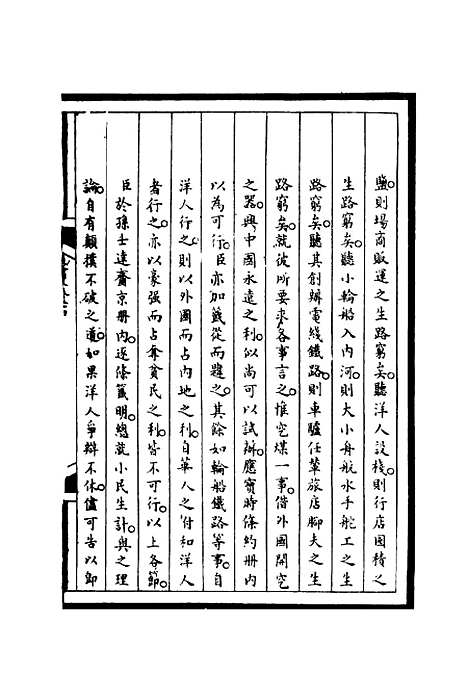 鹽。則場商販運之生路窮矣。聽洋人設棧。則行店囤積之
生路窮矣。聽小輪船入內河。則大小舟航水手舵工之生
路窮矣。聽其創辦電綫鐵路。則車驢任輦旅店腳夫之生
路窮矣。就彼所要求各事言之。惟窕煤一事。借外國開窕
之器。興中國永遠之利。似尚可以試辦。應寶時條約册內
以為可行。臣亦加籤從而韙之。其餘如輪船鐵路等事。自
洋人行之。則以外國而占內地之利。自華人之附和洋人
者行之。亦以豪强而占奪貧民之利。皆不可行。以上各節。
臣於孫士達齎京册內。逐條籤明。總就小民生計。與之理
論。自有顛撲不破之道。如果洋人爭辯不休。儘可告以卽